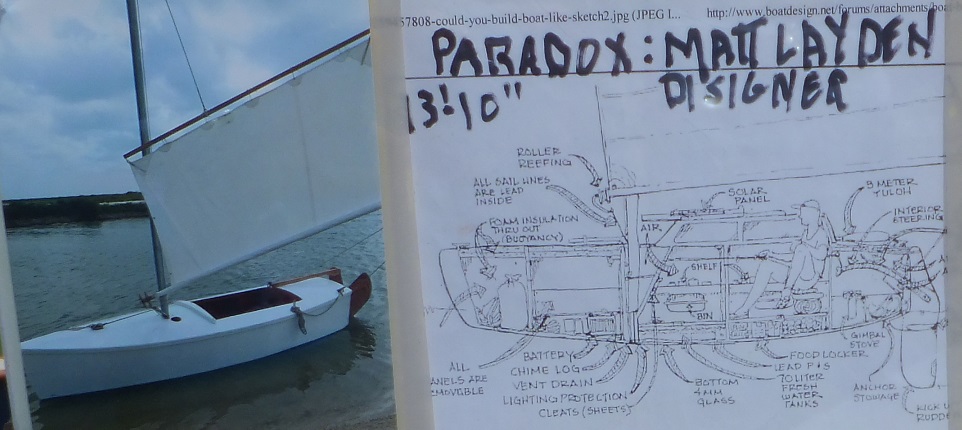 57808-could-you-build-boat-like-sketch2.jpg (JPEG I...
http://www.boatdesign.net/forums/attachments/boa
PARADOX: MATT LAYDEN
DISIGNER
13'10"
ROLLER
REEFING
ALL SAIL LINES
ARE LEAD
INSIDE
SOLAR
PANEL
INTERIOR
STEERING
FOAM INSULATION
THRU OUT
(BUOYANCY)
AIR
SHELF
BIN
GIMBAL
STOVE
ALL
ANELS ARE
EMOVABLE
BATTERY
CHIME LOG
VENT DRAIN
LIGHTING PROTECTION
CLEATS (SHEETS)
BOTTOM
4MM
GLASS
FOOD LOCKER
LEAD
70 LITER
FRESH
WATER
TANKS
ANCHOR
STOWAGE
KICK U
RUDDE